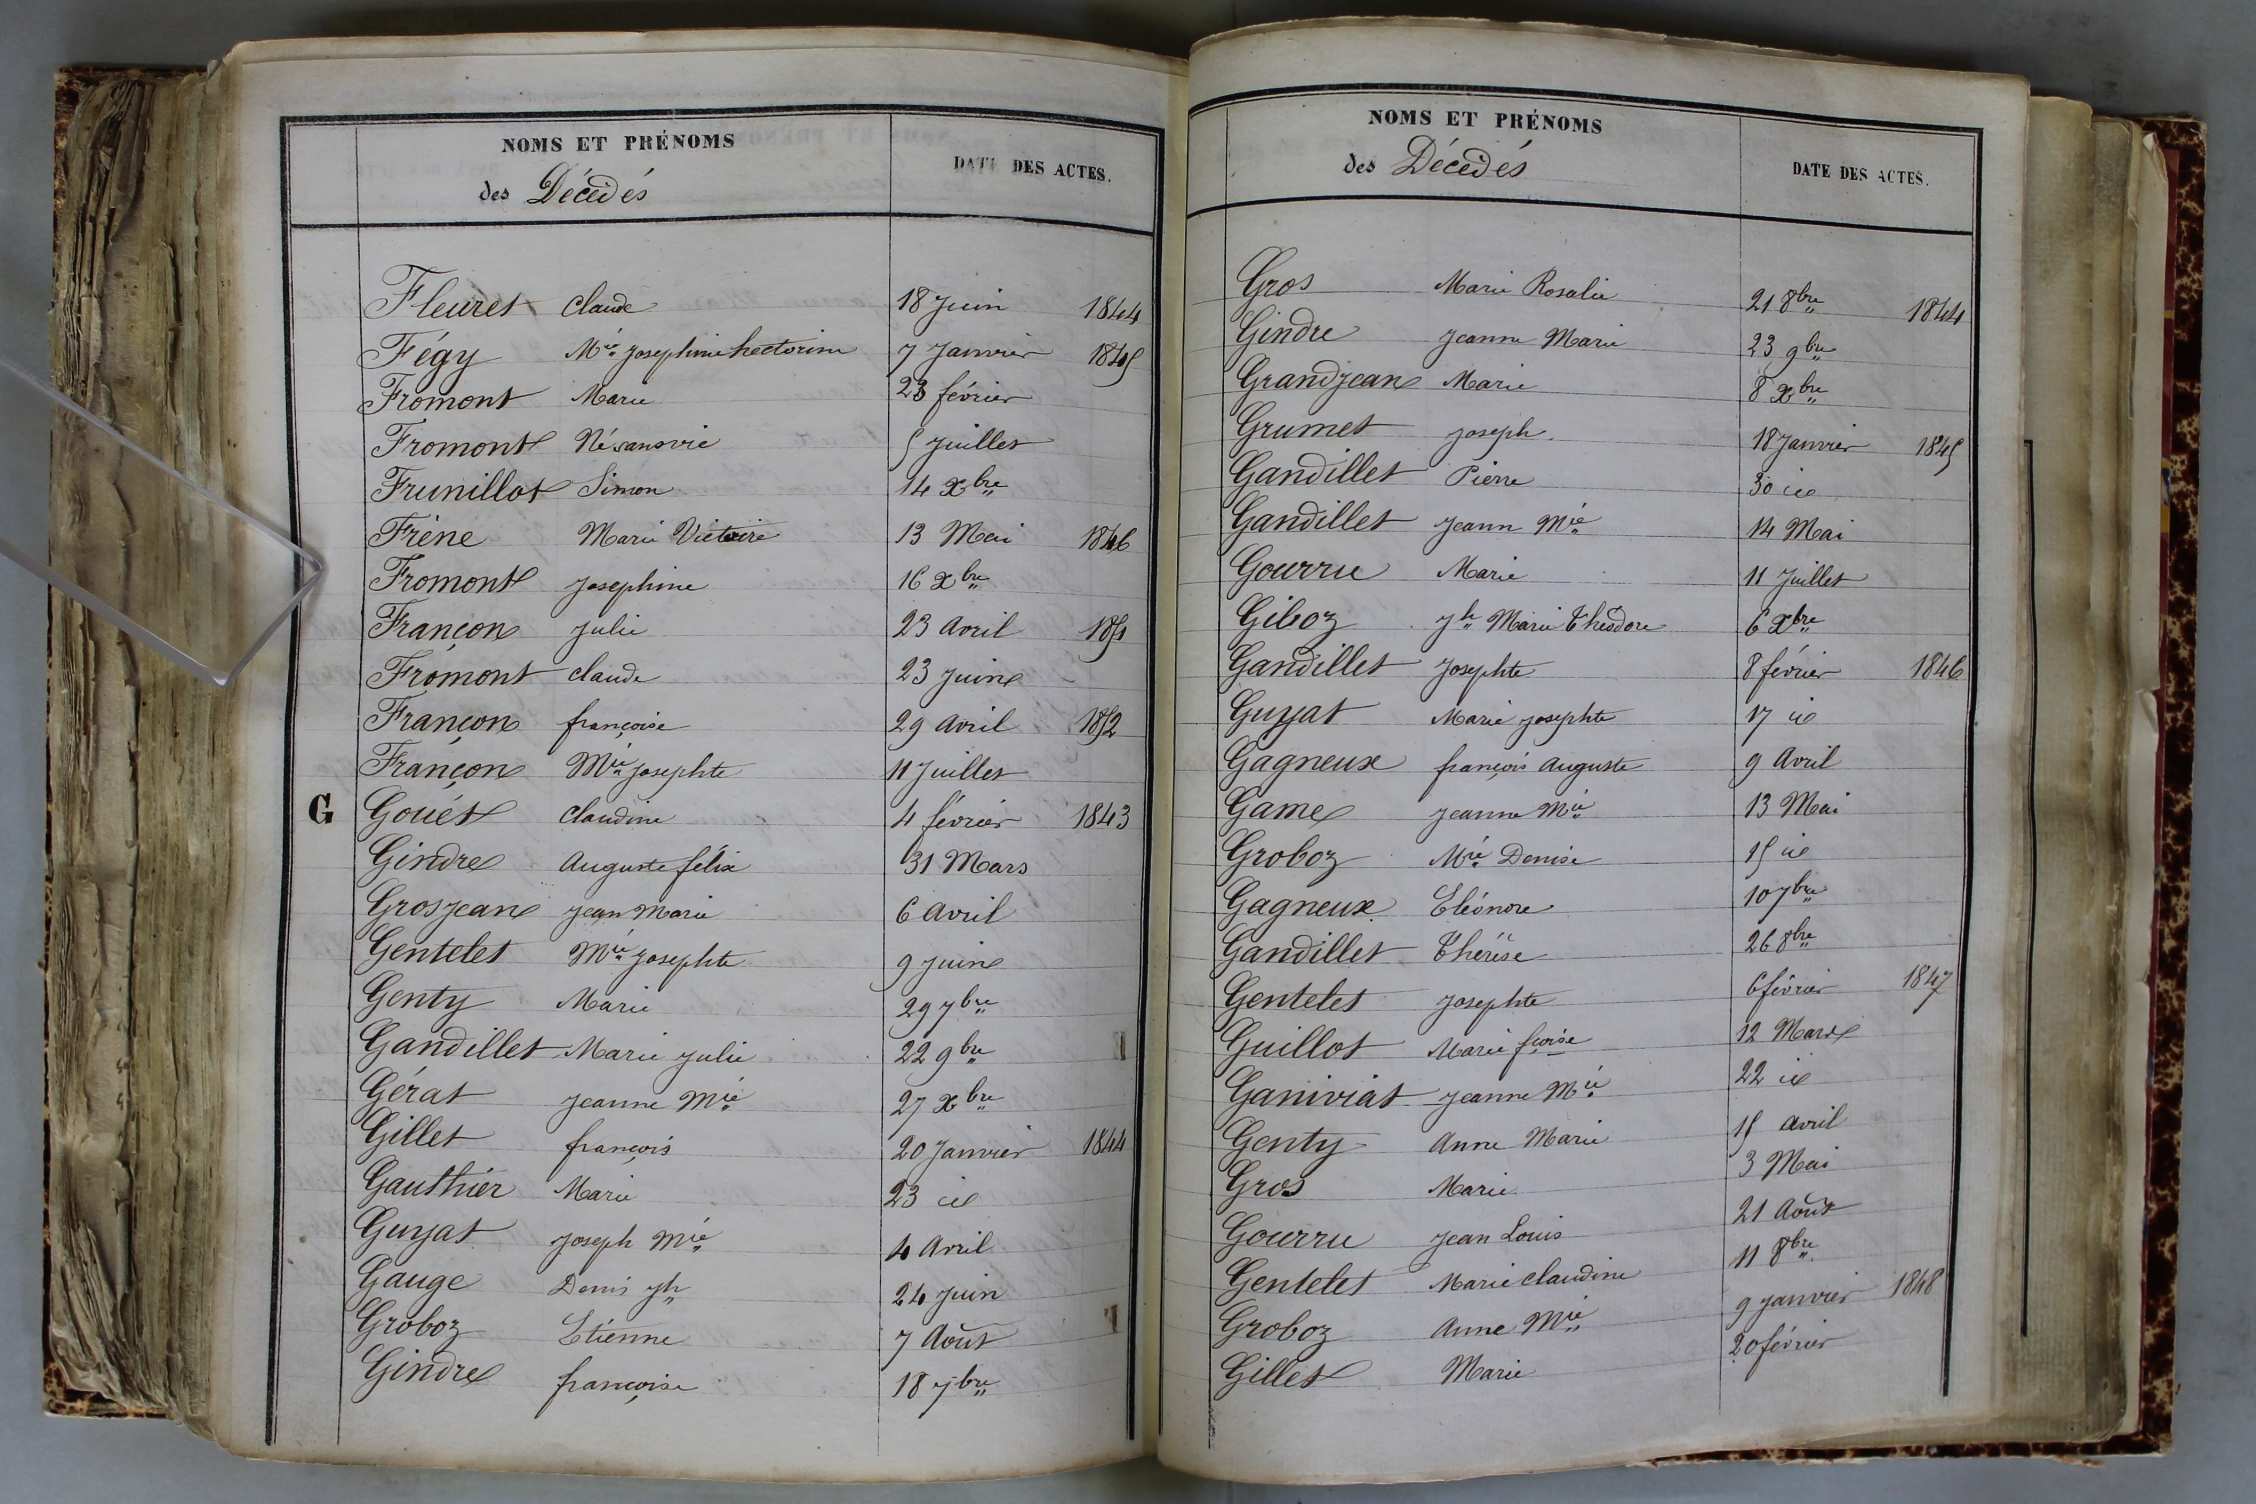 NOMS ET PRÉNOMS
des Décédés
DATE DES ACTES.
Fleuret Claude 18 Juin 1844
Fégy Mie Josephine hectorine 7 Janvier 1845
Fromont Marie 23 février
Fromont Né sans vie 5 Juillet
Frunillot Simon 14 Xbre
Frène Marie Victoire 13 Mai 1846
Fromont Josephine 16 Xbre
Françon Julie 23 Avril 1851
Fromont Claude 23 Juin
Françon françoise 29 Avril 1852
Françon Mie Josephte 11 Juillet
G Gouët Claudine 4 février 1843
Gindre Auguste félix 31 Mars
Grosjean Jean Marie 6 Avril
Gentelet Mie Josephte 9 Juin
Genty Marie 29 7bre
Gandillet Marie Julie 22 9bre
Gérat Jeanne Mie 27 Xbre
Gillet françois 20 Janvier 1844
Gauthier Marie 23 id
Guyat Joseph Mie 4 Avril
Gauge Denis Jh 24 Juin
Groboz Etienne 7 Août
Gindre françoise 18 7bre
NOMS ET PRÉNOMS
des Décédés
DATE DES ACTES.
Gros Marie Rosalie 21 8bre 1844
Gindre Jeanne Marie 23 9bre
Grandjean Marie 8 Xbre
Grumet Joseph 18 Janvier 1845
Gandillet Pierre 30 id
Gandillet Jeann Mie 14 Mai
Gourru Marie 11 Juillet
Giboz Jh Marie Théodore 6 Xbre
Gandillet Josephte 8 février 1846
Guyat Marie Josephte 17 id
Gagneux françois Auguste 9 Avril
Game Jeanne Mie 13 Mai
Groboz Mie Denise 15 id
Gagneux Eléonore 10 7bre
Gandillet Thérèse 26 8bre
Gentelet Josephte 6 février 1847
Guillot Marie fçoise 12 Mars
Ganiviat Jeanne Mie 22 id
Genty Anne Marie 15 avril
Gros Marie 3 Mai
Gourru Jean Louis 21 Août
Gentelet Marie Claudine 11 8bre
Groboz Anne Mie 9 Janvier 1848
Gillet Marie 20 février